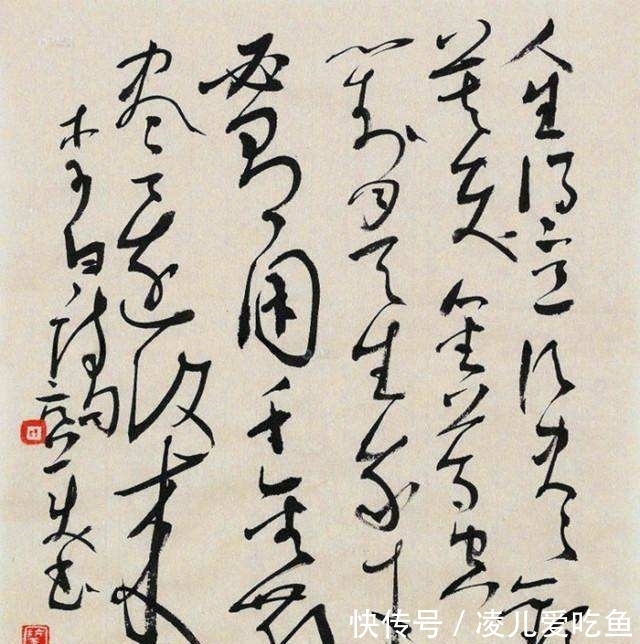 人生得意須盡歡
莫使金尊空
對月天生我材
必有用千金散
盡還復來
李白詩句
快传号 / 凌儿爱吃鱼